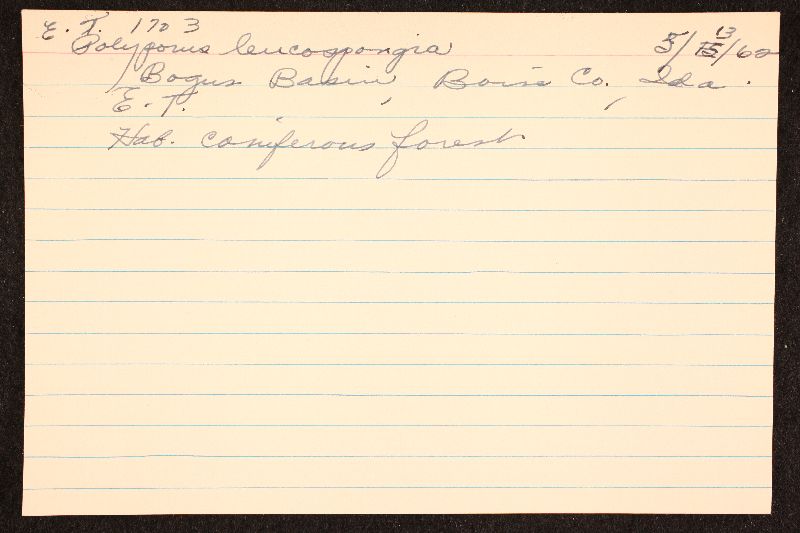 E. T. 1703
Polyporus leucospongia 5/13/62
Bogus Basin, Boise Co., Ida.
E. T.
Hab. coniferous forest